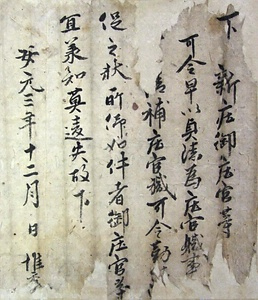 下 新庄御庄官等
可令早以貞清為庄官職事
補庄官職可令勤
促之状所仰如件者御庄官等
宜承知莫違失故下
安元三年十二月 日